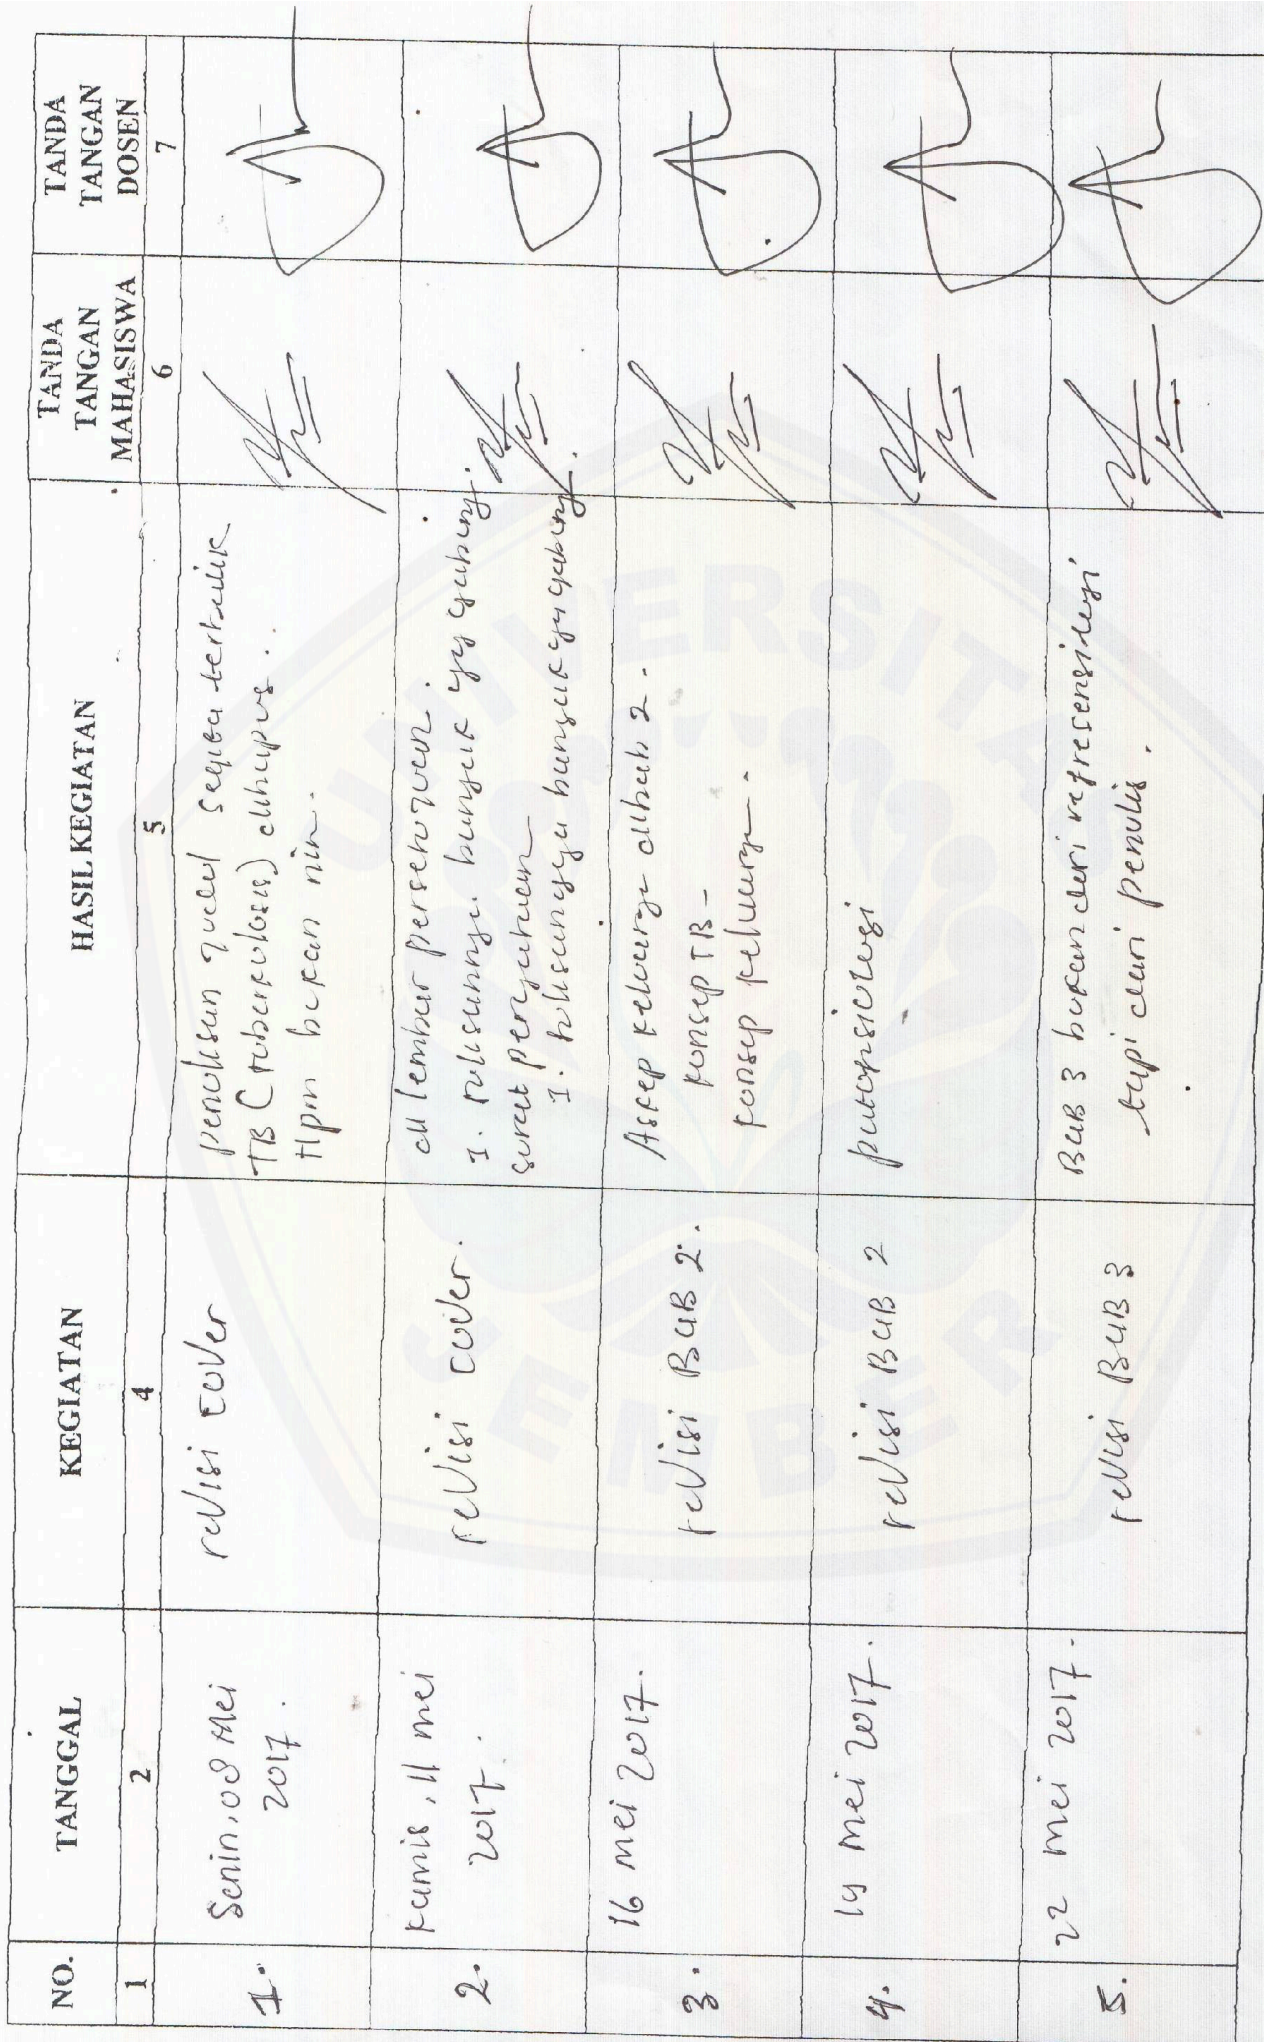 NO.
TANGGAL
KEGIATAN
HASIL KEGIATAN
TANDA
TANGAN
MAHASISWA
TANDA
TANGAN
DOSEN
1
2
4
5
6
7
1.
Senin, 08 Mei
2017.
revisi cover
penulisan
TB (tuberkulosis) dihapus.
bukan nim.
2.
Kamis, 11 mei
2017.
revisi cover.
di lembar persetujuan.
1. tulisannya banyak yg gabung.
surat pernyataan
1. tulisannya banyak yg gabung.
3.
16 mei 2017.
revisi BAB 2.
Askep keluarga dibab 2.
konsep TB -
konsep keluarga.
4.
19 mei 2017.
revisi BAB 2
patofisiologi
5.
22 mei 2017.
revisi BAB 3
BAB 3 bukan dari
tapi dari penulis.
UNIVERSITAS
JEMBER